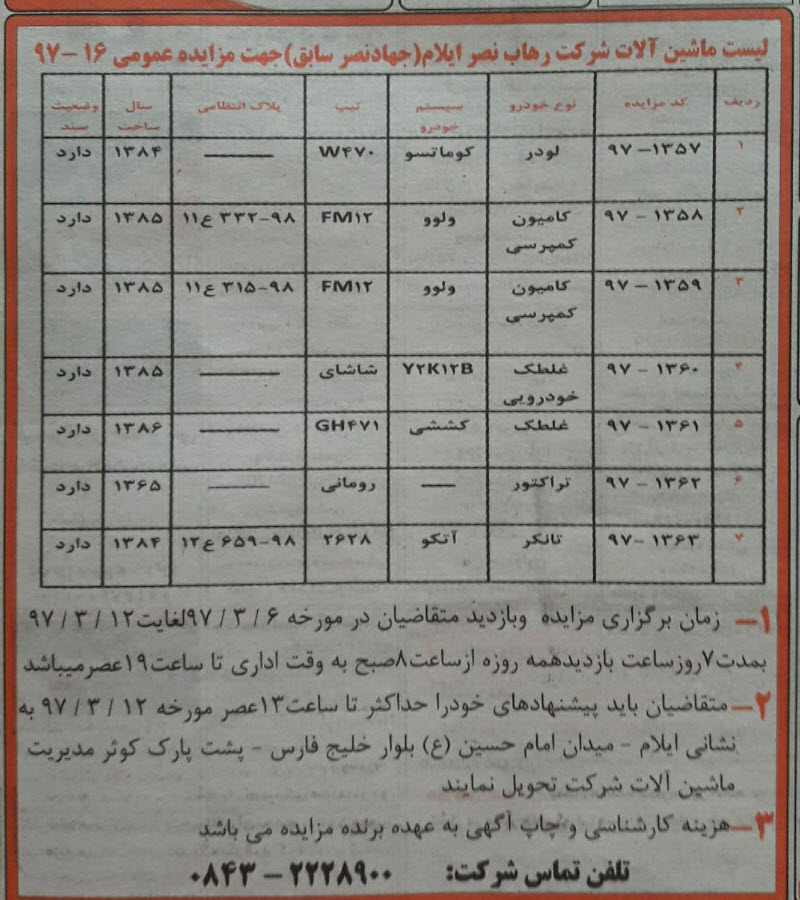 لیست ماشین آلات شرکت رهاب نصر ایلام(جهادنصر سابق)جهت مزایده عمومی ۱۶ -۹۷
ردیف کد مزایده نوع خودرو سیستم خودرو تیپ پلاک انتظامی سال ساخت وضعیت سند
۱ ۱۳۵۷- ۹۷ لودر کوماتسو W۴۷۰ ——— ۱۳۸۴ دارد
۲ ۱۳۵۸ - ۹۷ کامیون کمپرسی ولوو FM۱۲ ۹۸-۳۳۲ ع۱۱ ۱۳۸۵ دارد
۳ ۱۳۵۹ - ۹۷ کامیون کمپرسی ولوو FM۱۲ ۹۸-۳۱۵ ع۱۱ ۱۳۸۵ دارد
۴ ۱۳۶۰ - ۹۷ غلطک خودرویی Y۲K۱۲B شاشای ——— ۱۳۸۵ دارد
۵ ۱۳۶۱ - ۹۷ غلطک کششی GH۴۷۱ ——— ۱۳۸۶ دارد
۶ ۱۳۶۲ - ۹۷ تراکتور —— رومانی ——— ۱۳۶۵ دارد
۷ ۱۳۶۳ -۹۷ تانکر آتکو ۲۶۲۸ ۹۸-۶۵۹ ع۱۲ ۱۳۸۴ دارد
۱- زمان برگزاری مزایده وبازدید متقاضیان در مورخه ۶ / ۳ / ۹۷لغایت۱۲ / ۳ / ۹۷
بمدت۷روزساعت بازدیدهمه روزه ازساعت۸صبح به وقت اداری تا ساعت۱۹عصرمیباشد
۲-متقاضیان باید پیشنهادهای خودرا حداکثر تا ساعت۱۳عصر مورخه ۱۲ / ۳ / ۹۷ به
نشانی ایلام - میدان امام حسین (ع) بلوار خلیج فارس - پشت پارک کوثر مدیریت
ماشین آلات شرکت تحویل نمایند
۳-هزینه کارشناسی و چاپ آگهی به عهده برنده مزایده می باشد
تلفن تماس شرکت: ۲۲۲۸۹۰۰ - ۰۸۴۳